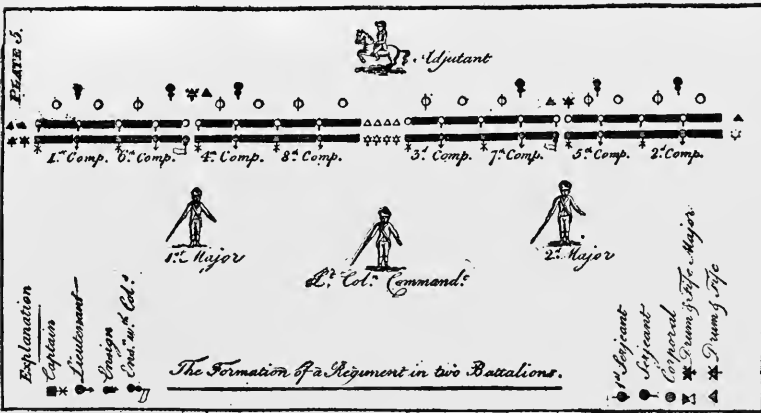 PLATE 5.
Adjutant
1st Comp. 6th Comp. 4th Comp. 8th Comp. 3d Comp. 7th Comp. 5th Comp. 2d Comp.
1st Major
Lt. Coln. Commandt.
2d Major
Explanation
Captain
Lieutenant
Ensign
Ensn. wth. Cols.
The Formation of a Regiment in two Battalions.
1st Serjeant
Serjeant
Corporal
Drum & Fife Major
Drum & Fife